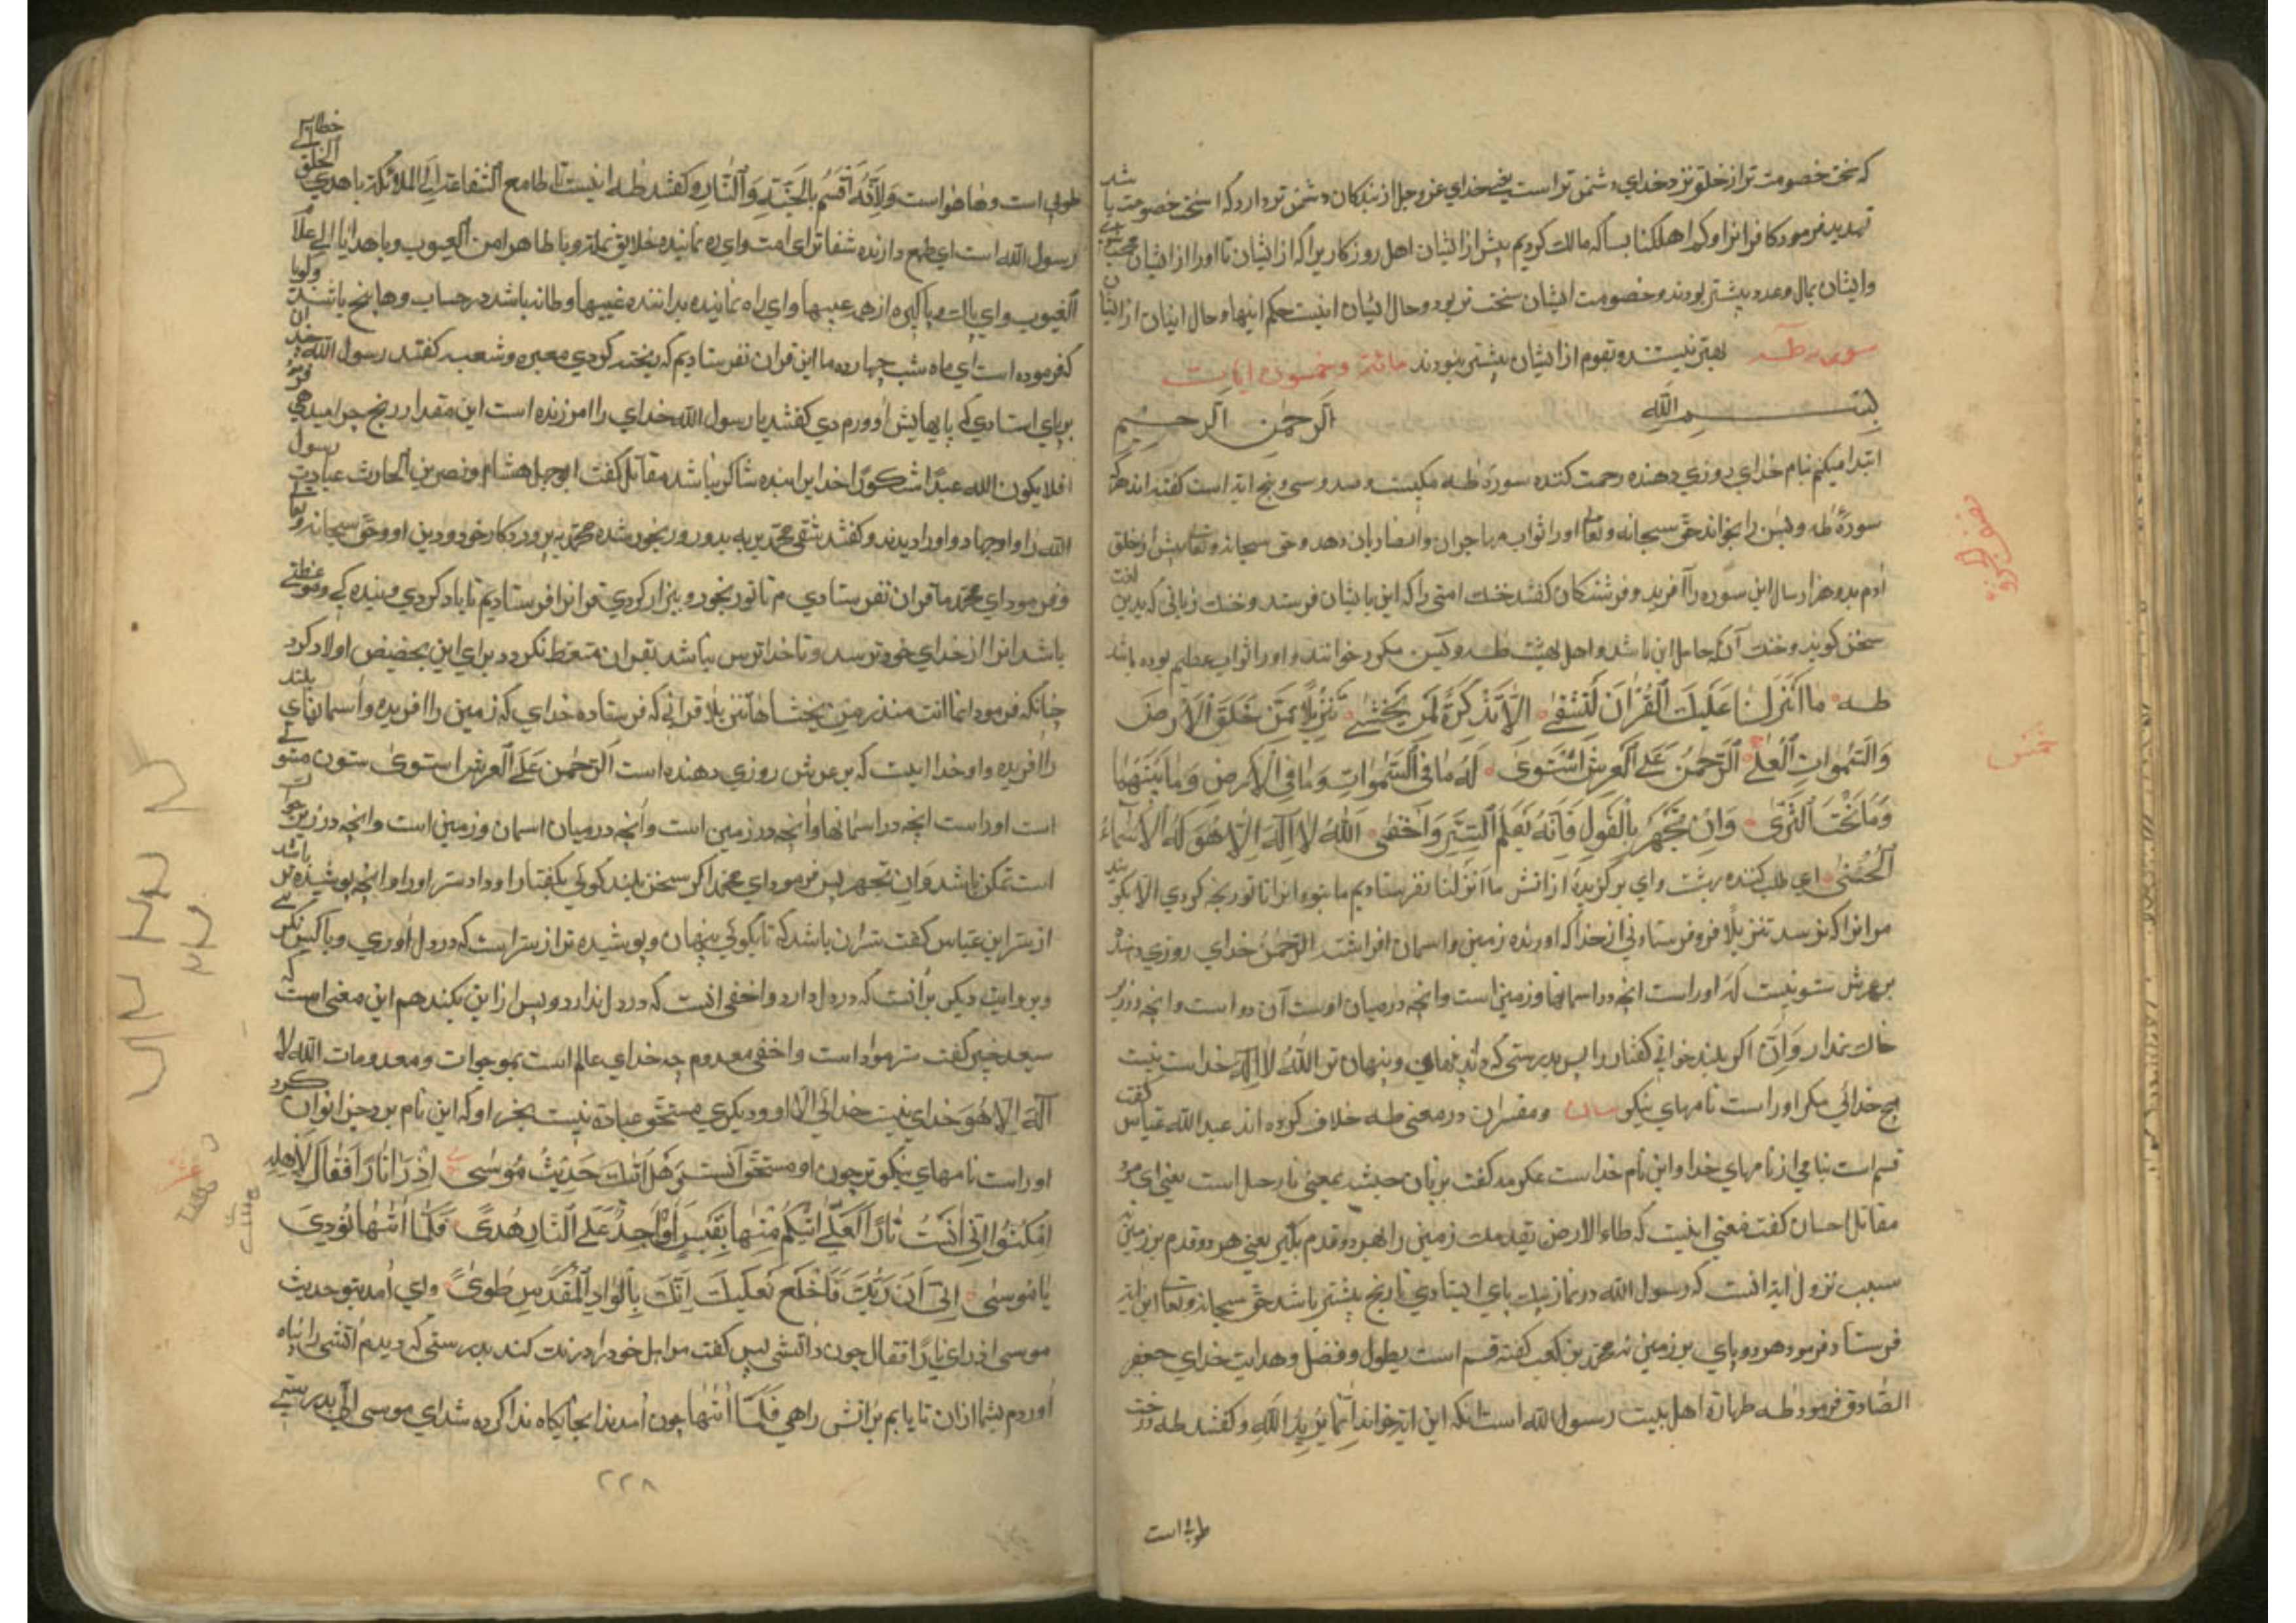 که سخت خصومت تر از خلق نزد خدای دشمن تر است یعنی خدای عز وجل از بندکان دشمن تر دارد که اسخت خصومت با شد
تهدید فرمود کافرانرا وکم اهلکنا بساکه هالک کردیم پیش از ایشان اهل روزکار یرا که از ایشان تا اورا از ایشان
وایشان بمال وعدد بیشتر بودند وخصومت ایشان سخت تر بود وحال ایشان اینست حکم اینها وحال اینان از ایشان
بهتر نیستند وبقوم از ایشان بیشتر نبودند سوره طه مائة وخمسون ایات
بسم الله الرحمن الرحیم
ابتدا میکنم بنام خدای روزی دهنده رحمت کننده سورهٔ طه مکیست وصد وسی وپنج ایة است کفته اند هرکه
سورهٔ طه ویس را بخواند حق سبحانه وتعالی اورا ثواب مهاجران وانصاریان دهد وحق سبحانه وتعالی پیش از خلق
آدم بدو هزار سال این سوره را آفرید وفرشتکان کفتند خنک امتی را که این بایشان فرستد وخنک زبانی که بدین
سخن کویند وخنک آنکه حامل این باشد واهل بهشت طه ویس مکرر خوانند واورا ثواب عظیم بوده باشد
طه ما أنزلنا علیك القرآن لتشقی إلا تذکرة لمن یخشی تنزیلا ممن خلق الأرض
والسموات العلی الرحمن علی العرش استوی له ما فی السموات وما فی الأرض وما بینهما
وما تحت الثری وإن تجهر بالقول فإنه یعلم السر وأخفی الله لا إله إلا هو له الأسماء
الحسنی ای طلب کننده بهشت وای برکزیده از اتش ما انزلنا نفرستادیم ما بتو قرانرا تا تو رنجه کردی الا پند
مر انرا که ترسد تنزیلا فرو فرستادنی از خدا که اورنده زمین واسمان افراشت الرحمن خدای روزی دهنده
بر عرش ستونیست که اوراست انچه در اسمانها وزمین است وانچه در میان اوست آن دو است وانچه در زیر
خاك نمدار وان اکر بلند خوانی کفتار را پس بدرستی که داند نهانی وپنهان تر الله لا اله خداست نیست
هیچ خدائی مکر اوراست نامهای نیکو بیان ومفسران در معنی طه خلاف کرده اند عبد الله عباس کفت
قسم است بنامی از نامهای خدا واین نام خداست عکرمه کفت بزبان حبشه بمعنی یا رجل است یعنی ای مرد
مقاتل احسان کفت معنی اینست که طاء الارض بقدمك زمین را بهر دو قدم بکیر یعنی هر دو قدم بر زمین
سبب نزول ایة انست که رسول الله در نماز بیك پای ایستادی تا رنج بیشتر باشد حق سبحانه وتعالی این ایة
فرستاد فرمود هر دو پای بر زمین نه محمد بن کعب کفته قسم است بطول وفضل وهدایت خدای جعفر
الصادق فرمود طه طهارة اهل بیت رسول الله است انکه این ایة خواند انما یرید الله وکفتند طه درخت
طوبی است
طوبی است وها هواست ولانه اقسم بالجنة والنار وکفتند طه اینست یا طامع الشفاعة الی الملائکة یا هادی الخلق
رسول الله است ای طمع دارنده شفاتر ای امت وای ره نماینده خلایق بملة ویا طاهرا من العیوب ویا هادیا الی علام
الغیوب وای پاك وپاکیزه از همه عیبها وای راه نماینده بدانتده غیبها وطا نه باشد در حساب وها پنج باشند
که فرموده است ای ماه شب چهارده ما این قران نفرستادیم که رنجته کردی معبره وشعبه کفتند رسول الله
بر پای استادی که پایهایش اوورم دی کفتند یا رسول الله خدای را امرزنده است این مقدار رنج چرا میدهی
افلا یکون الله عبدا شکورا خدایرا بنده شاکر نباشد مقاتل کفت ابو جهل هشام ونصر بن الحارث عبادت رسول
الله را واجهاد واورا دیدند وکفتند شقی محمد بر به بدو ورنجور شده محمد بپروردکار خود ودین او وحق سبحانه وتعالی
وفرمود ای محمد ما قران نفرستادیم تا تو رنجور وبیزار کردی قرانرا فرستادیم تا یاد کردی وپنده کی وموعظتی
باشد انرا از خدای خود ترسد وتا خداترس نباشد بقران متعظ نکردد برای این بخضیض اولاد کرد
چنانکه فرمود انما انت منذر من یخشاها تنزیلا قرانی که فرستاده خدای که زمین را افریده واسمانهای بلند
را افریده واو خداییست که بر عرش روزی دهنده است الرحمن علی العرش استوی ستون
است اوراست انچه در اسمانها وانچه در زمین است وانچه در میان اسمان وزمین است وانچه در زیر
است تمکن باشد وان تجهر پس فرمود ای محمد اکر سخن بلند کوئی بکفتار او داد ستر اورا وانچه پوشیده تر باشد
از ستر ابن عباس کفت ستر ان باشد که تا بکوئی پنهان وپوشیده تر از ستر است که در دل اوری وباکس نکی
وبروایت دیکر بر انست که در دل دارد واخفی انست که در دل ندارد وپس از این بکند هم این معنی است که
سعید جبیر کفت ستر مواد است واخفی معدوم چه خدای عالم است بموجوات ومعدومات الله لا
اله الا هو خدای نیست خدائی الا او ودیکری مستحق عبادة نیست بخر او که این نام بر وجز انوان کرد
اوراست نامهای نیکوتر چون او مستحق آنست وهل أتاك حدیث موسی إذ رأی نارا فقال لأهله
امکثوا إنی آنست نارا لعلی آتیکم منها بقبس أو أجد علی النار هدی فلما أتاها نودی
یا موسی إنی أنا ربك فاخلع نعلیك إنك بالواد المقدس طوی وای آمد بتو حدیث
موسی اذ رای نارا فقال چون د اتشی پس کفت مر اهل خود را درنك کند بدرستی که دیدم اتشی را
اوردم بشما ازان تا یابم بر اتش راهی فلما اتیها چون آمد بدا بجایکاه ندا کرده شد ای موسی انی بدرستی
۲۲۸